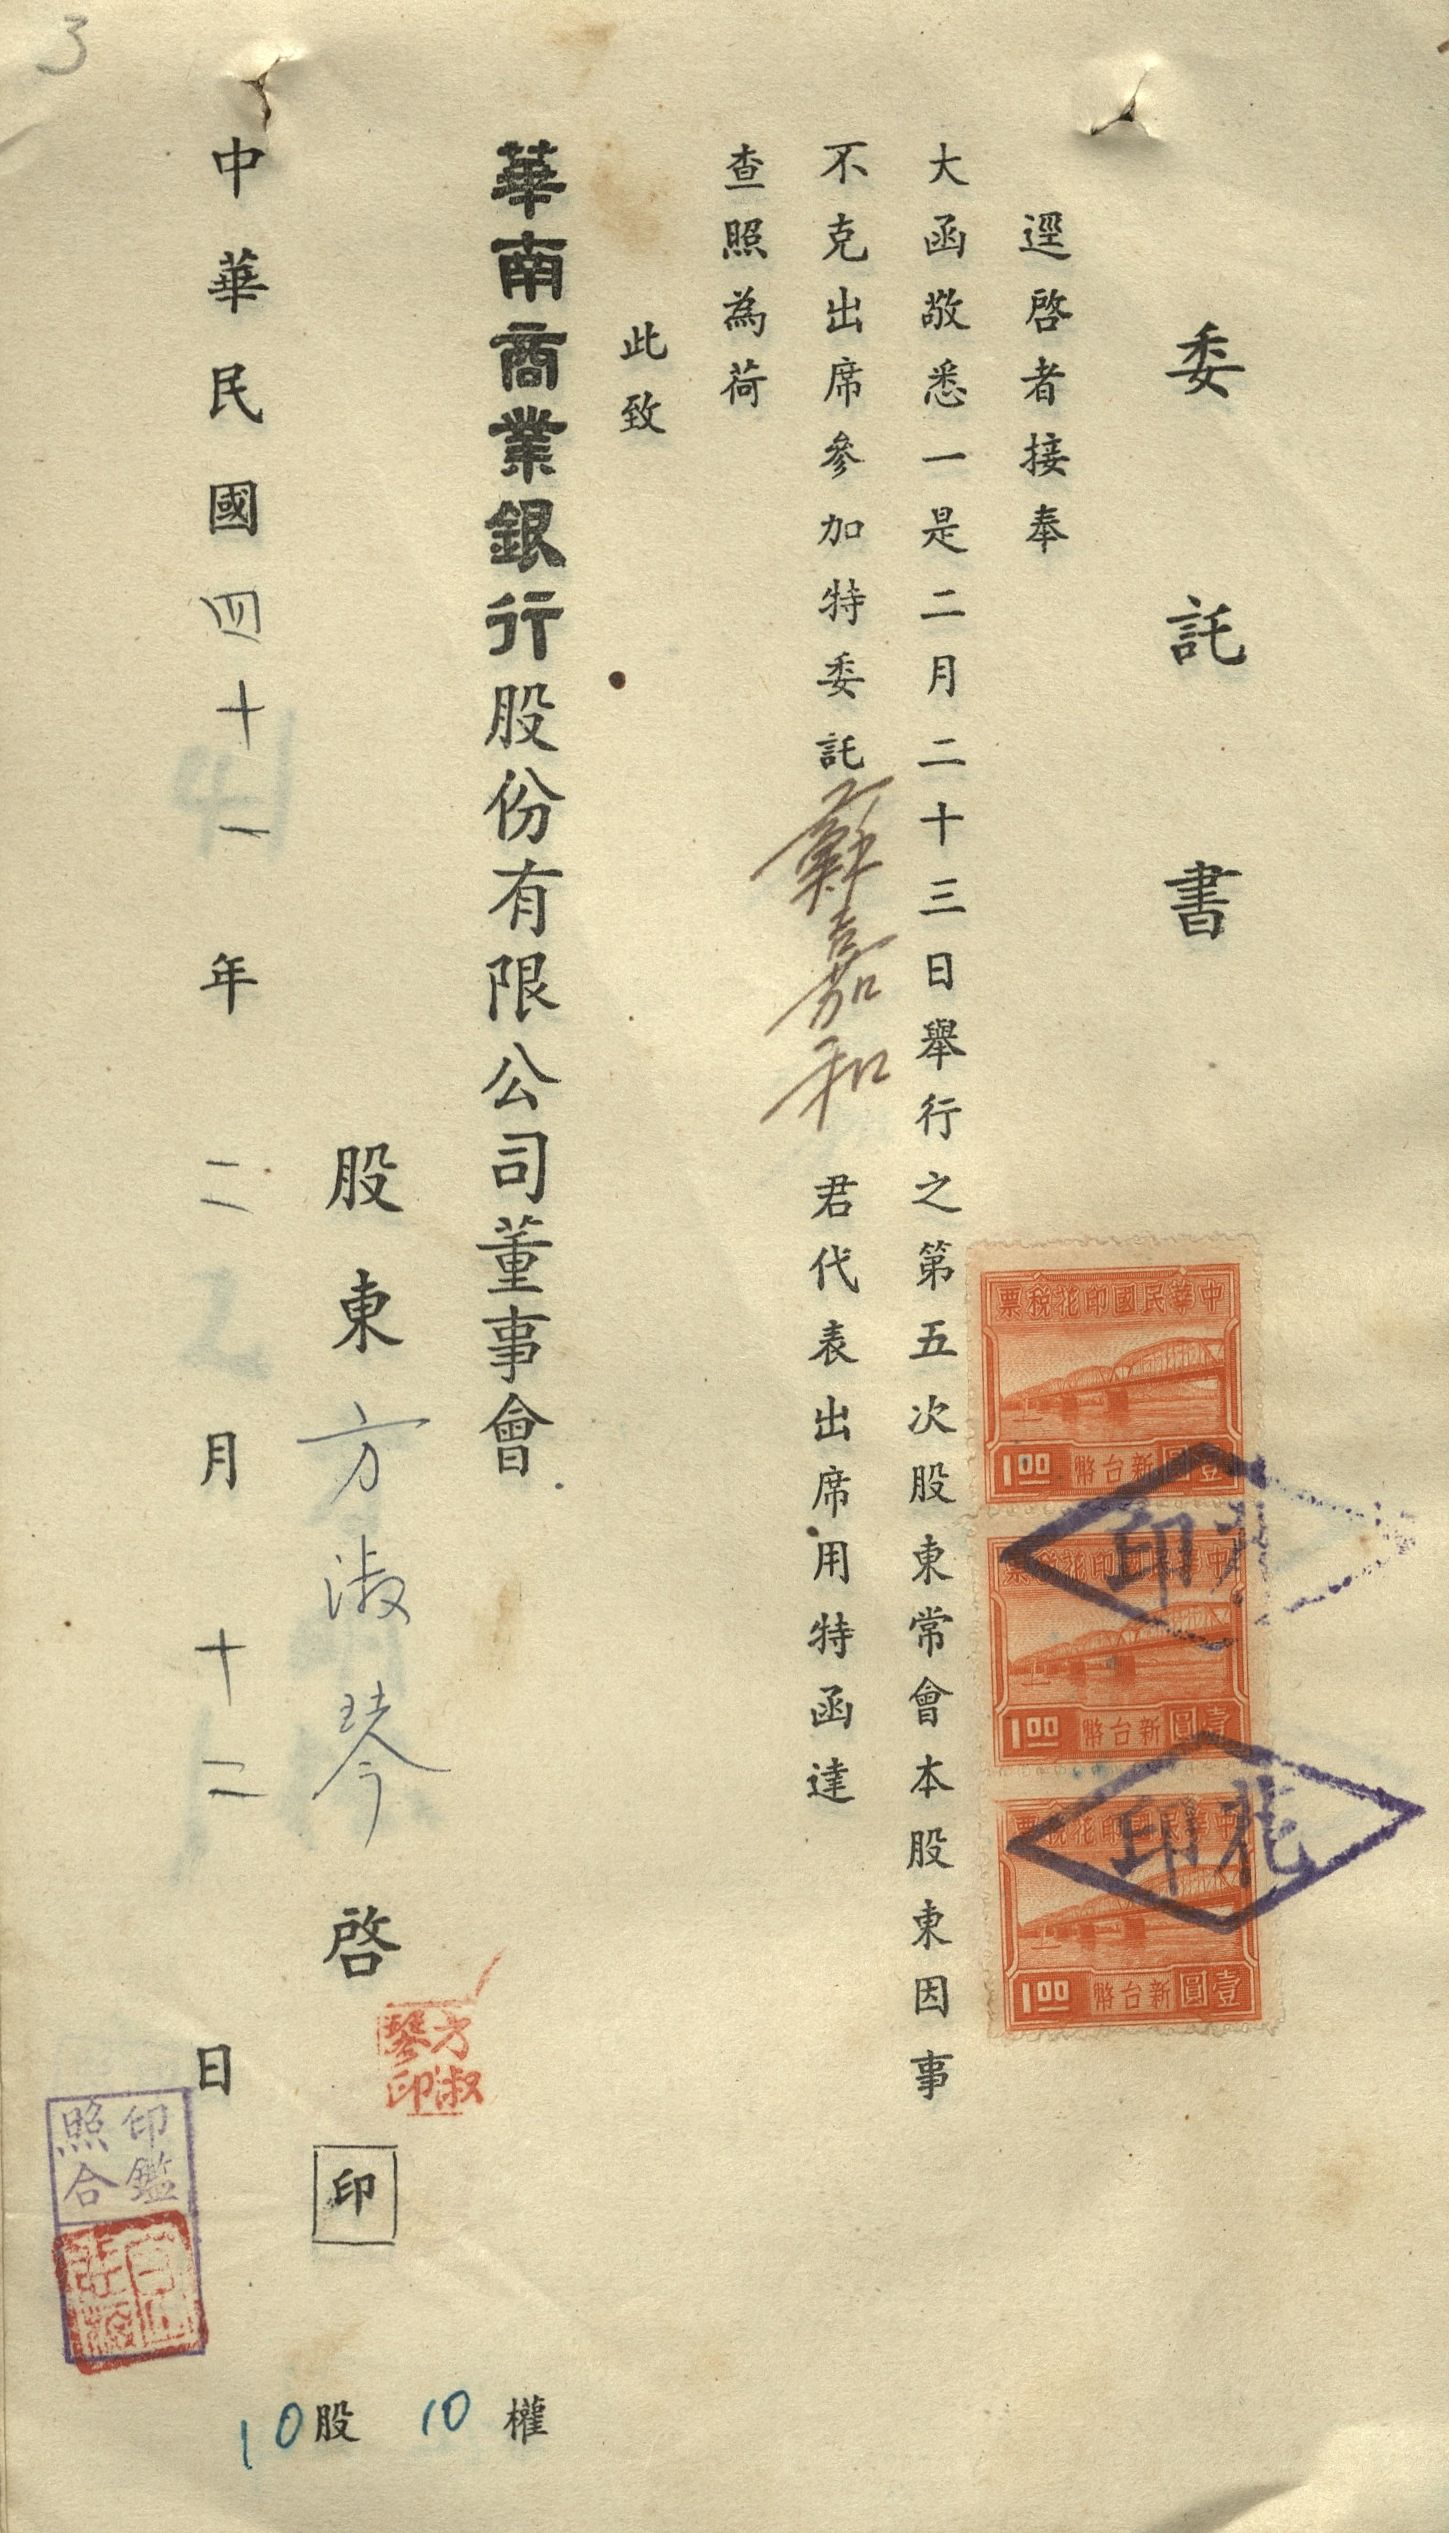 3
委託書
逕啓者接奉
大函敬悉一是二月二十三日舉行之第五次股東常會本股東因事
不克出席參加特委託蘇嘉和君代表出席用特函達
查照為荷
此致
華南商業銀行股份有限公司董事會
股東方淑琴啓 印
方淑琴印
中華民國四十一年二月十二日
印鑑照合
10股 10權
中華民國印花稅票
1.00 新台幣壹圓
中華民國印花稅票
1.00 新台幣壹圓
中華民國印花稅票
1.00 新台幣壹圓
花印
花印